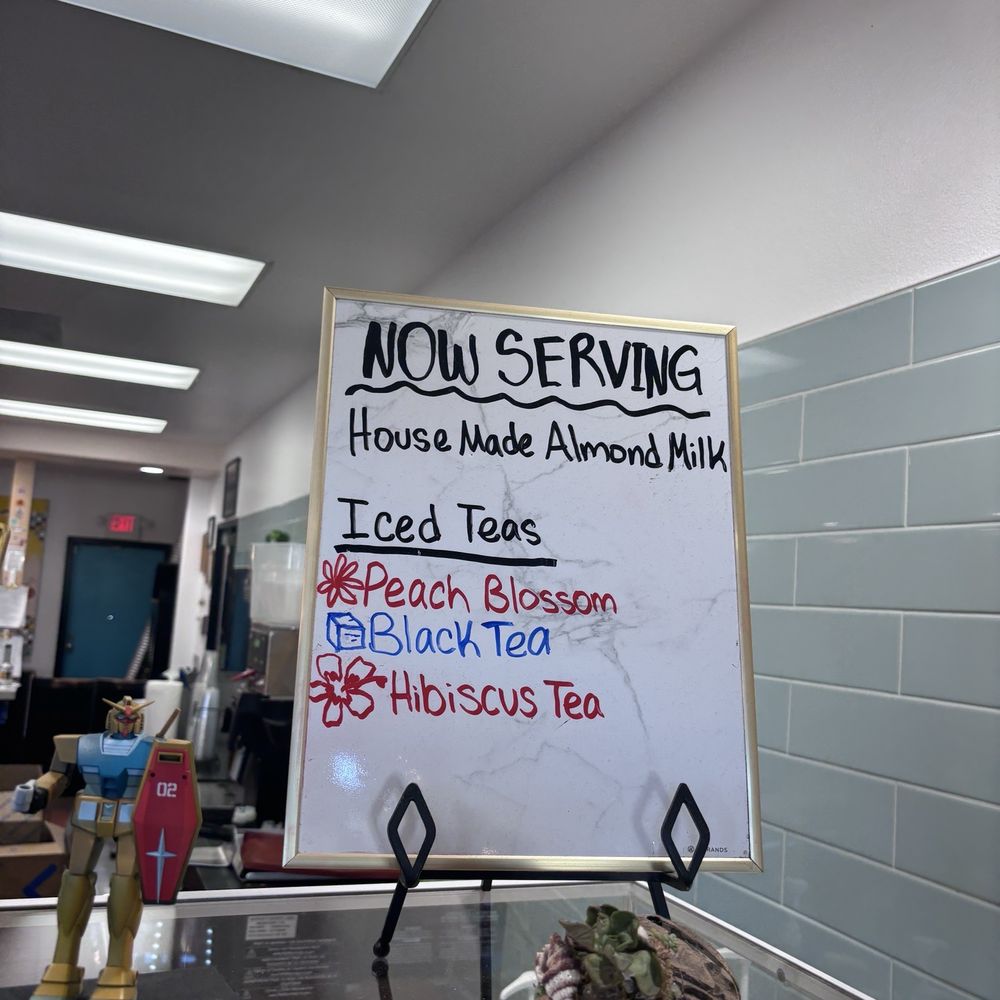 NOW SERVING
House Made Almond Milk
Iced Teas
Peach Blossom
Black Tea
Hibiscus Tea
02